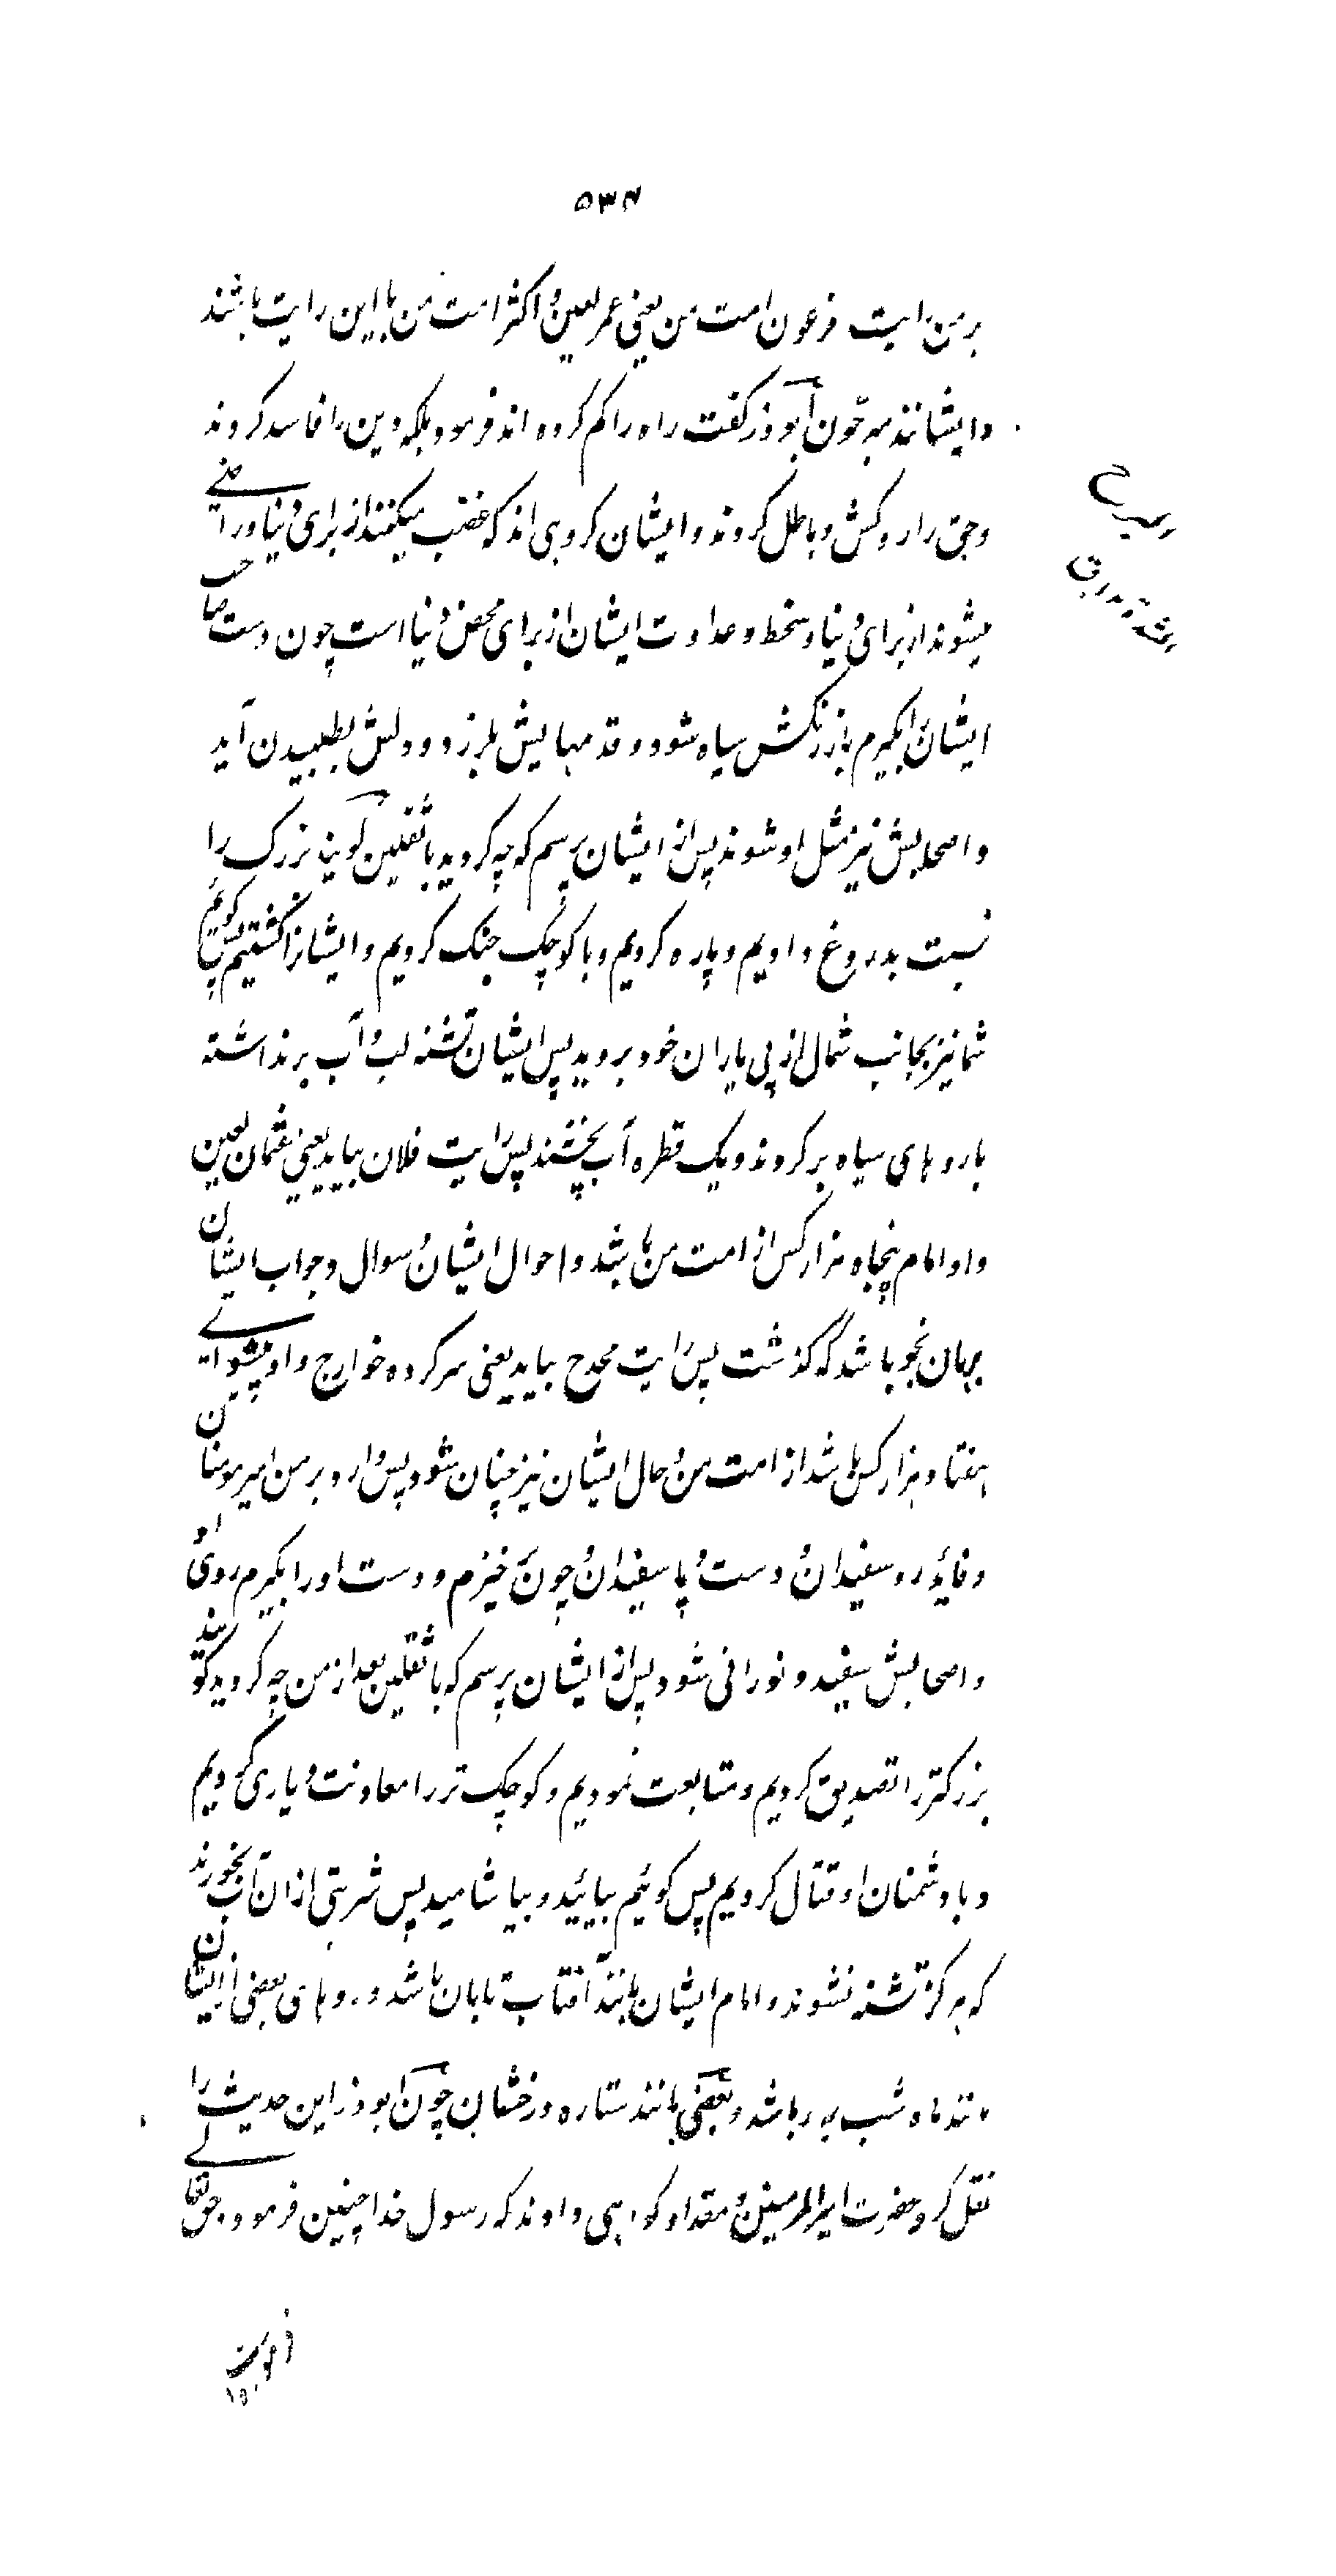 ۵۳۴
بر من رایت فرعون امت من یعنی عمر لعین و اکثر امت من با این رایت باشند
و ایشانند مبهرجون ابوذر گفت راه را کم کرده اند فرمود بلکه دین را فاسد کردند
و حق را روکش و باطل کردند و ایشان کروهی اند که غضب میکنند از برای دنیا و راضی
میشوند از برای دنیا و سخط و عداوت ایشان از برای محض دنیا است چون دست صاحب
ایشان را بگیرم باز رنگش سیاه شود و قدمهایش بلرزد و دلش بطپیدن آید
و اصحابش نیز مثل او شوند پس از ایشان پرسم که چه کردید با ثقلین کویند بزرک را
نسبت بدروغ دادیم و پاره کردیم و با کوچک جنک کردیم و ایشانرا کشتیم پس کویم
شما نیز بجانب شمال از پی یاران خود بروید پس ایشان تشنه لب و آب برنداشته
با روهای سیاه برگردند و یک قطره آب نچشند پس رایت فلان بیاید یعنی عثمان لعین
و او امام پنجاه هزار کس از امت من باشد و احوال ایشان و سوال و جواب ایشان
بهمان نحو باشد که گذشت پس رایت مخدج بیاید یعنی سرکرده خوارج و او پیشوای
هفتاد هزار کس باشد از امت من و حال ایشان نیز چنان شود پس وارد بر من امیر مومنان
و قائد رو سفیدان و دست و پا سفیدان چون برخیزم و دست او را بگیرم روی او
و اصحابش سفید و نورانی شود پس از ایشان پرسم که با ثقلین بعد از من چه کردید کویند
بزرکتر را تصدیق کردیم و متابعت نمودیم و کوچک تر را معاونت و یاری کردیم
و با دشمنان او قتال کردیم پس کوئیم بیائید و بیاشامید پس شربتی از ان آب بخورند
که هرکز تشنه نشوند و امام ایشان مانند آفتاب تابان باشد و روهای بعضی از ایشان
مانند ماه شب بدر باشد و بعضی مانند ستاره درخشان چون ابوذر این حدیث را
نقل کرد حضرت امیرالمومنین و مقداد کواهی دادند که رسول خدا چنین فرمود و حق تعالی